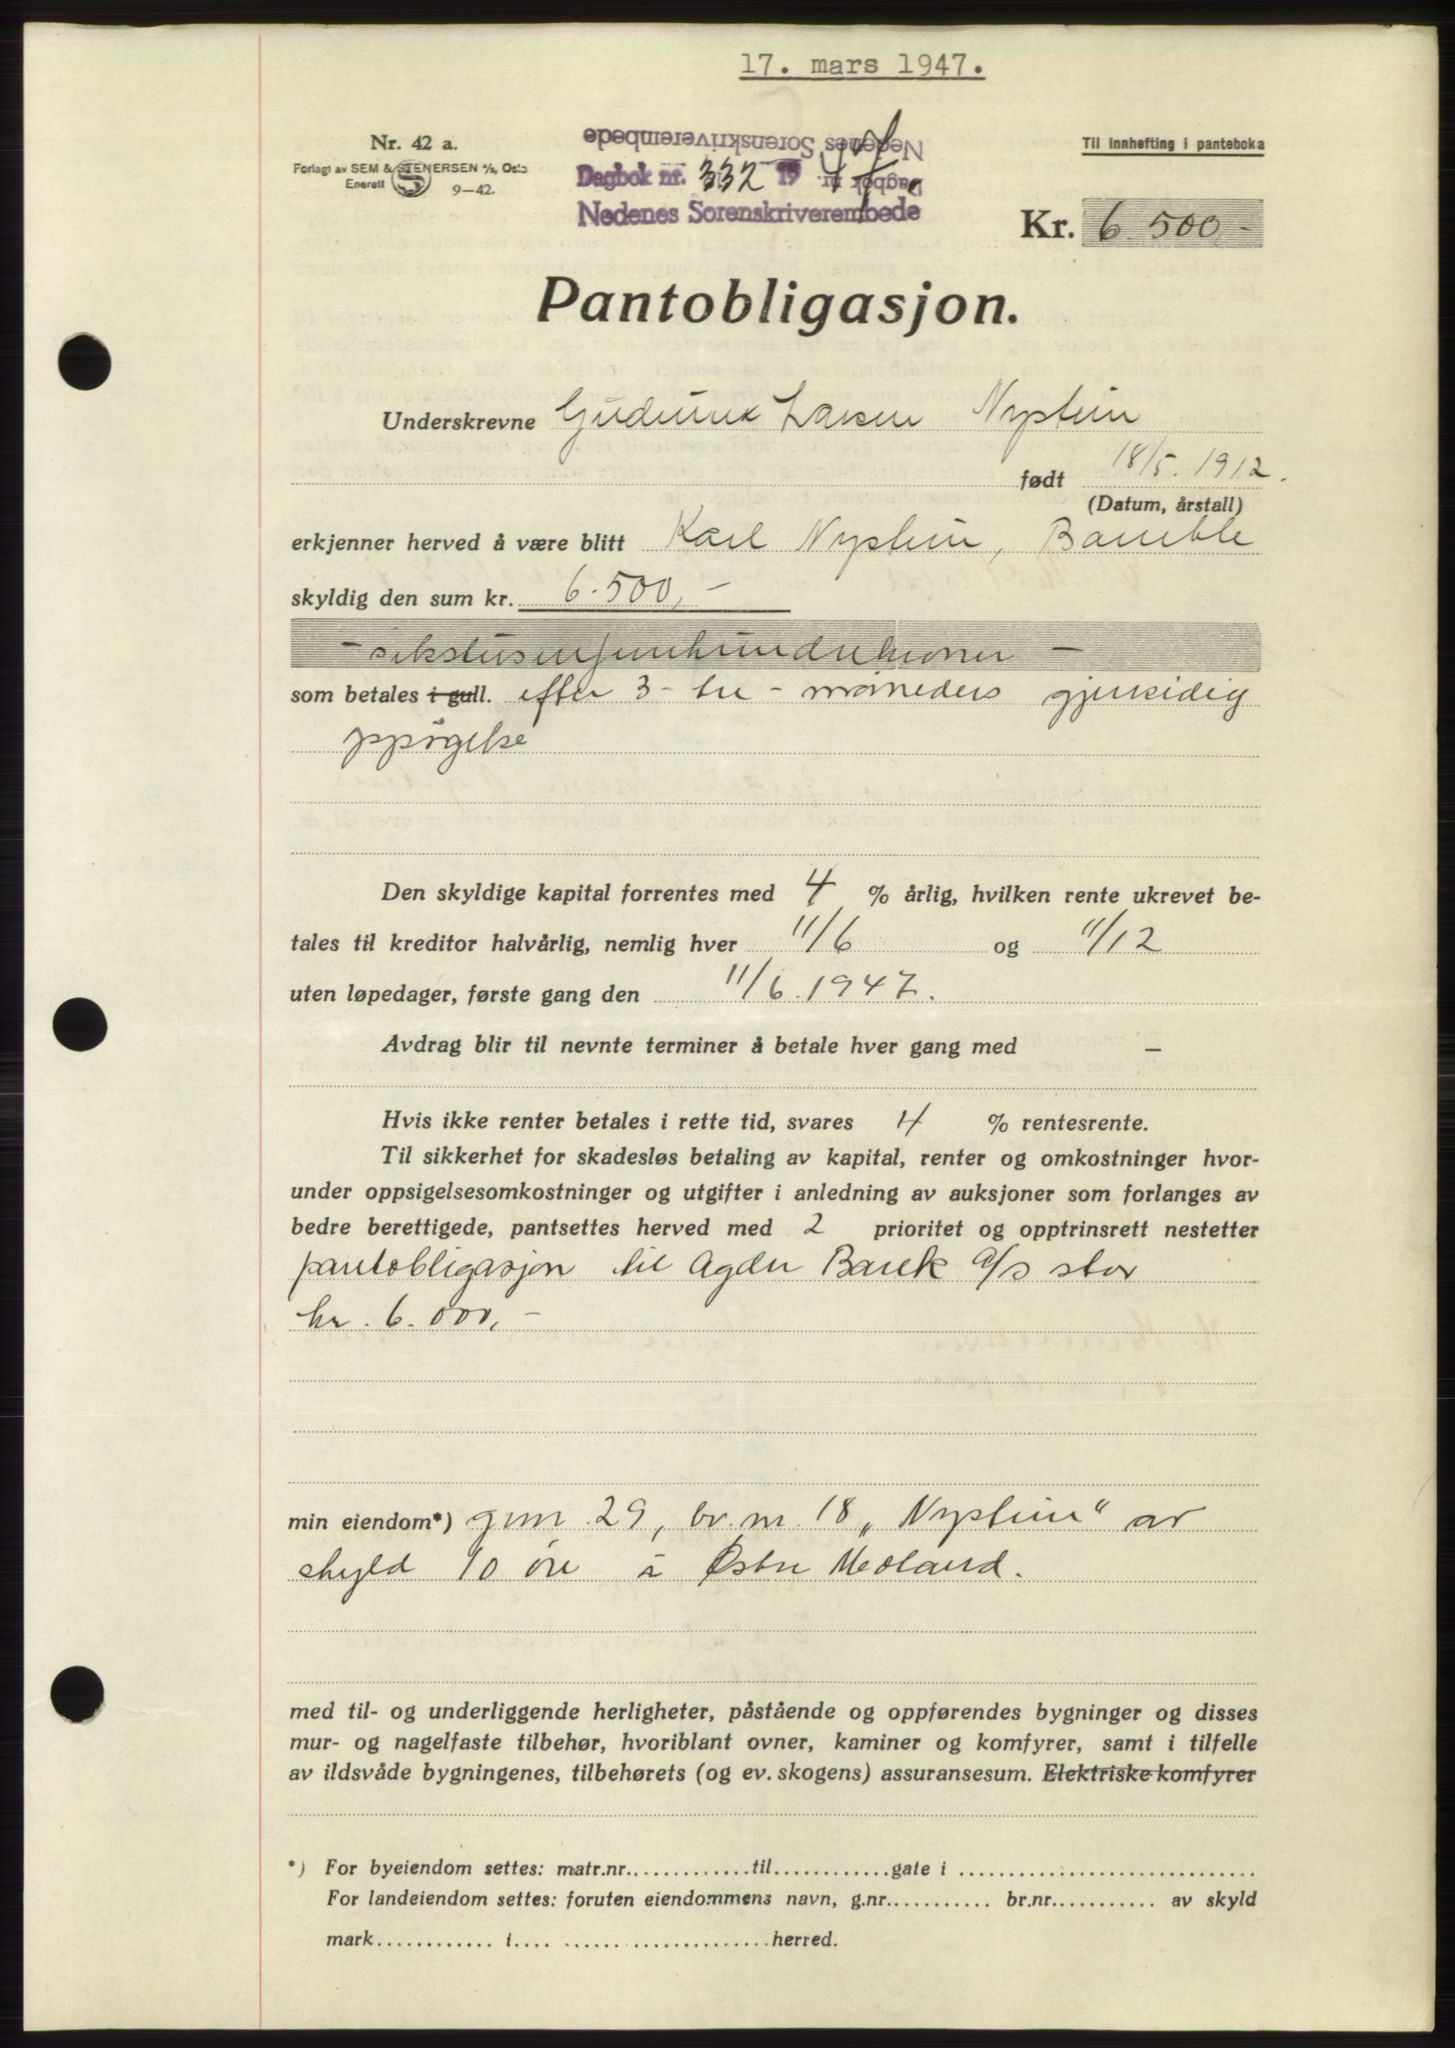 17. mars 1947.
Nr. 42 a.
Forlagt av SEM & STENERSEN A/S, Oslo
Enerett 9—42.
Nedenes Sorenskriverembede
Dagbok nr. 332 19
Nedenes Sorenskriverembede
Til innhefting i panteboka
Kr. 6 500,-
Pantobligasjon.
Underskrevne Larsen Nystein
født 18/5. 1912.
(Datum, årstall)
erkjenner herved å være blitt Karl Nystein, Bamble
skyldig den sum kr. 6.500,-
- sekstusenfemhundrekroner -
som betales i gull. efter 3 - tre - måneders gjensidig
oppsigelse
Den skyldige kapital forrentes med 4 % årlig, hvilken rente ukrevet be-
tales til kreditor halvårlig, nemlig hver 11/6 og 11/12
uten løpedager, første gang den 11/6. 1947.
Avdrag blir til nevnte terminer å betale hver gang med —
Hvis ikke renter betales i rette tid, svares 4 % rentesrente.
Til sikkerhet for skadesløs betaling av kapital, renter og omkostninger hvor-
under oppsigelsesomkostninger og utgifter i anledning av auksjoner som forlanges av
bedre berettigede, pantsettes herved med 2 prioritet og opptrinsrett nestetter
pantobligasjon til Agder Bank A/S stor
kr. 6.000,-
min eiendom*) gnr. 29, br. nr. 18 „Nystein" av
skyld 10 øre i Østre Moland.
med til- og underliggende herligheter, påstående og oppførendes bygninger og disses
mur- og nagelfaste tilbehør, hvoriblant ovner, kaminer og komfyrer, samt i tilfelle
av ildsvåde bygningenes, tilbehørets (og ev. skogens) assuransesum. Elektriske komfyrer
*) For byeiendom settes: matr.nr.............til............gate i ..............................
For landeiendom settes: foruten eiendommens navn, g.nr........... br.nr........... av skyld
mark............ i.... ......................herred.